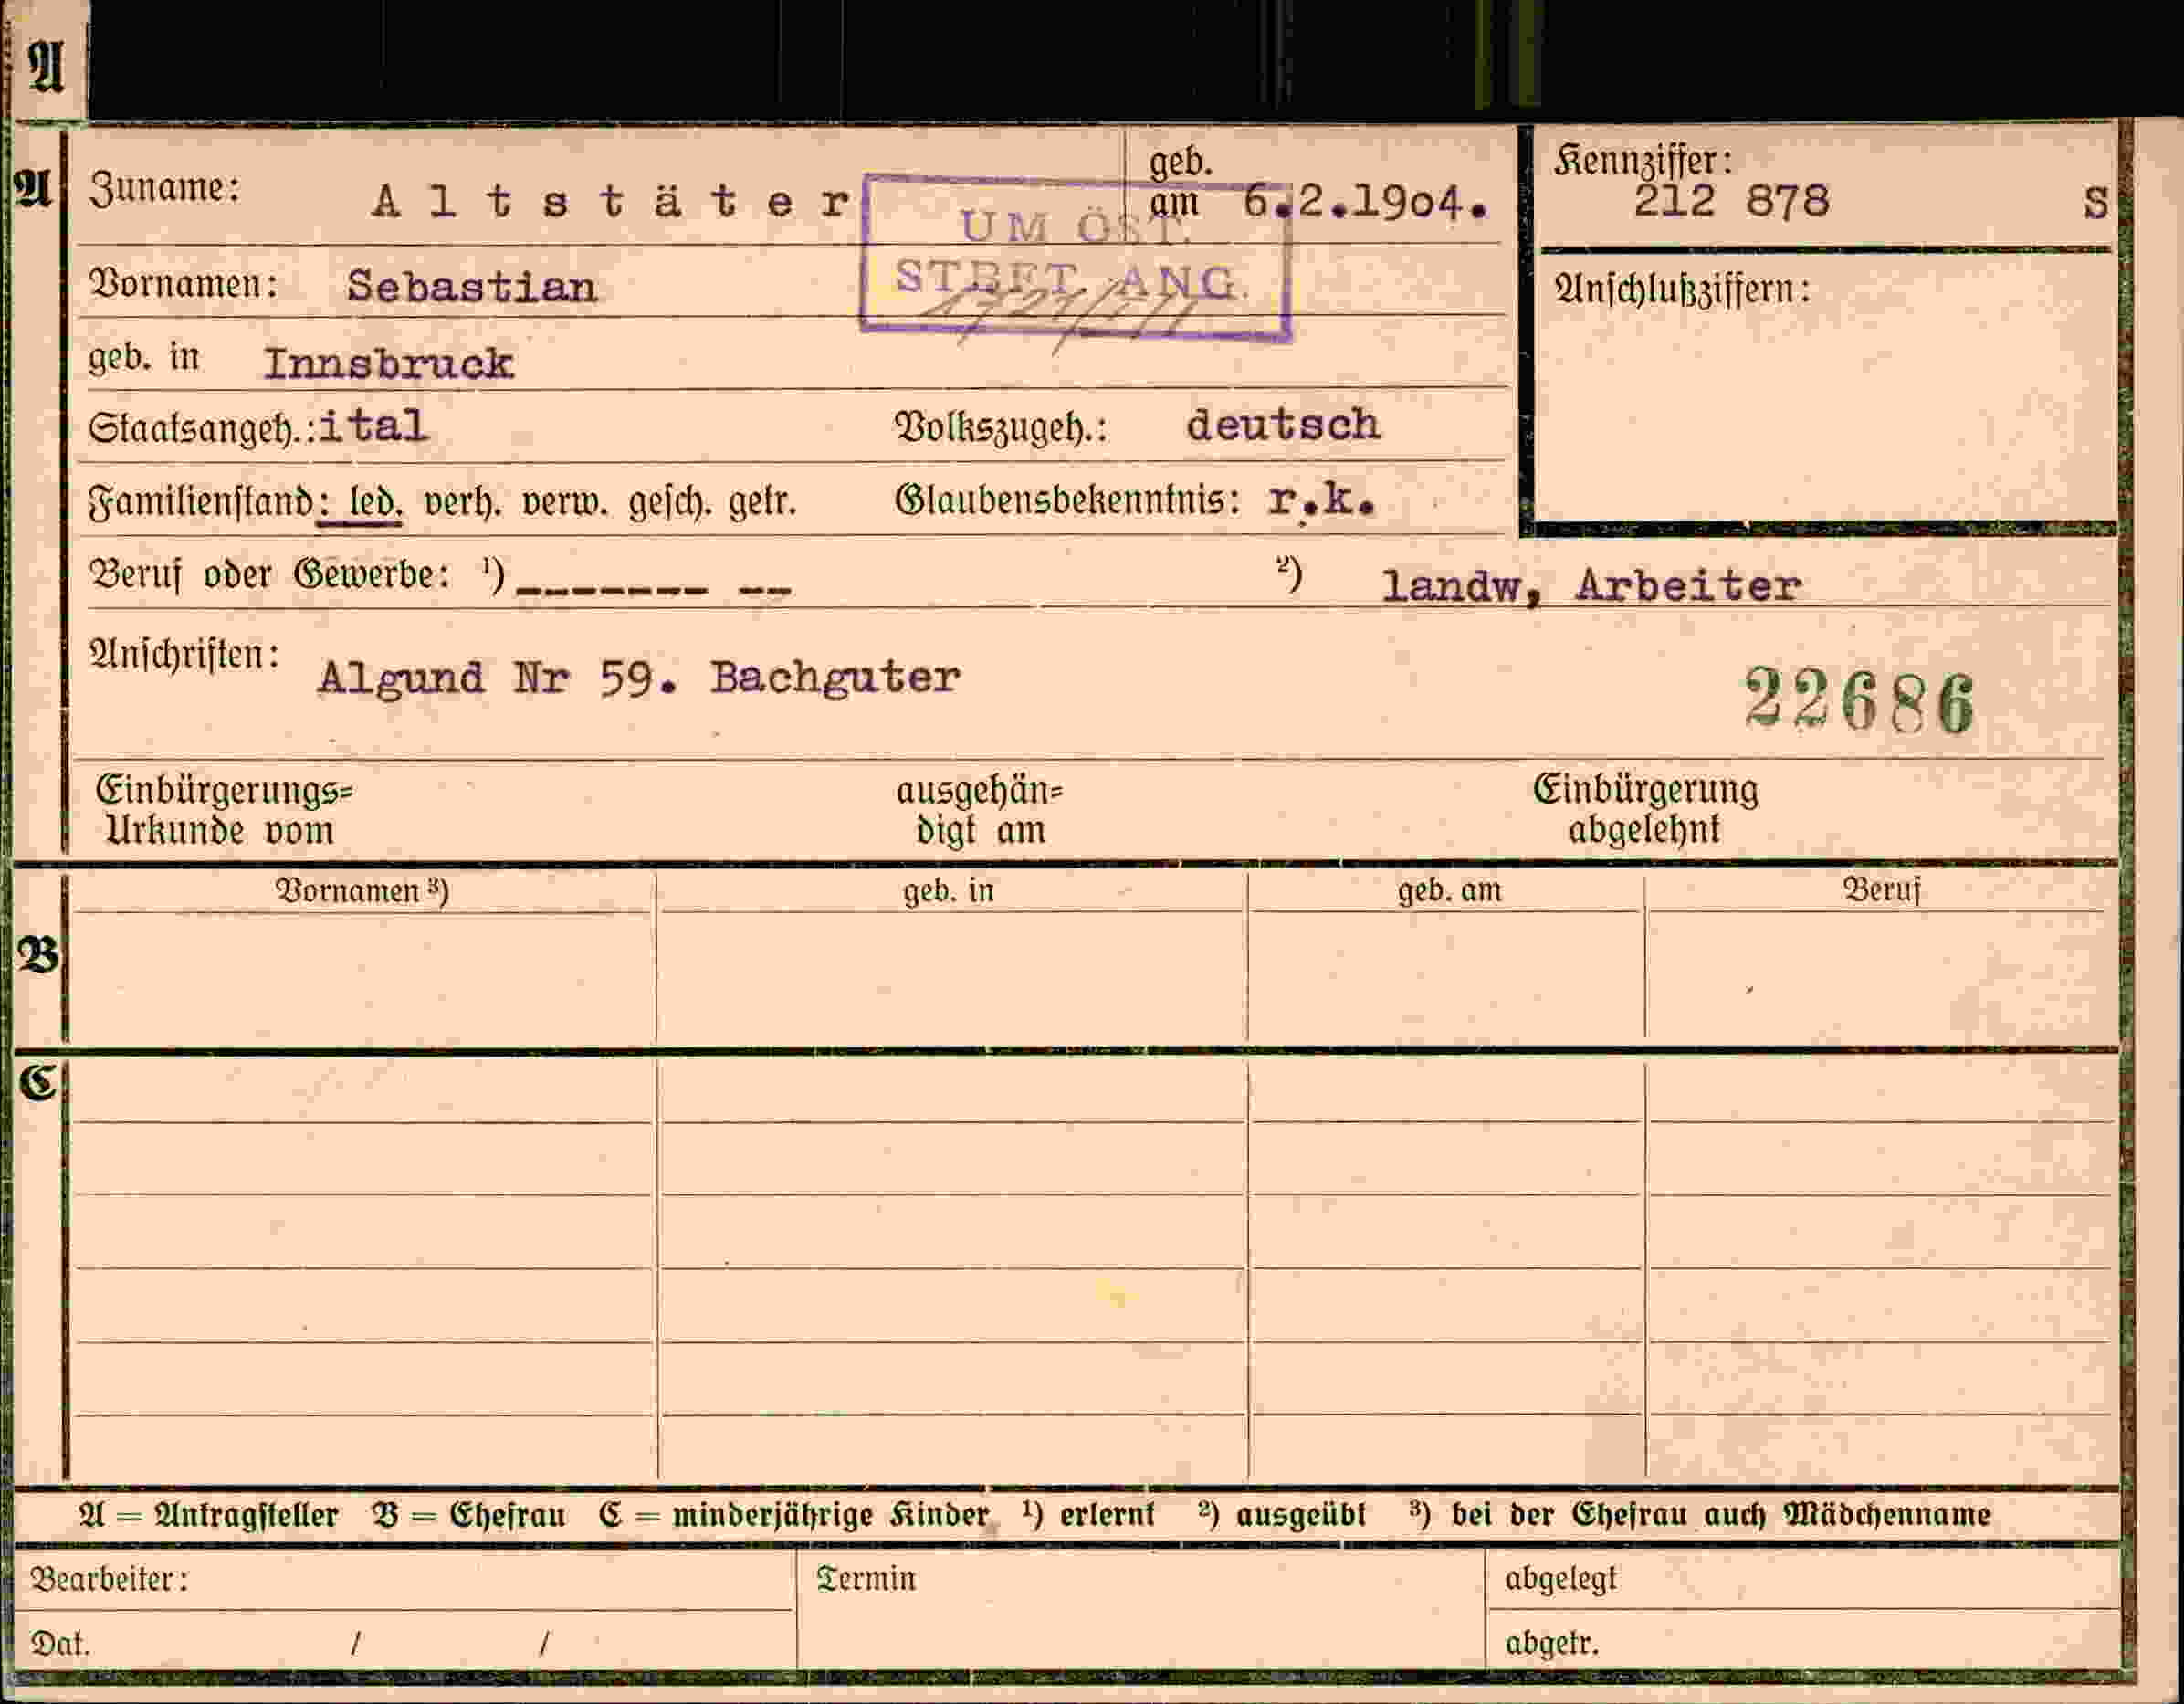 A
A Zuname: Altstäter geb. am 6.2.1904. Kennziffer: 212 878 S
UM ÖST.
STBFT. ANG.
Vornamen: Sebastian Anschlußziffern:
geb. in Innsbruck
Staatsangeh.: ital Volkszugeh.: deutsch
Familienstand: led. verh. verw. gesch. getr. Glaubensbekenntnis: r.k.
Beruf oder Gewerbe: ¹) ------- -- ²) landw, Arbeiter
Anschriften: Algund Nr 59. Bachguter
22686
Einbürgerungs= ausgehän= Einbürgerung
Urkunde vom digt am abgelehnt
Vornamen ³) geb. in geb. am Beruf
B
C
A = Antragsteller B = Ehefrau C = minderjährige Kinder ¹) erlernt ²) ausgeübt ³) bei der Ehefrau auch Mädchenname
Bearbeiter: Termin abgelegt
Dat. / / abgetr.